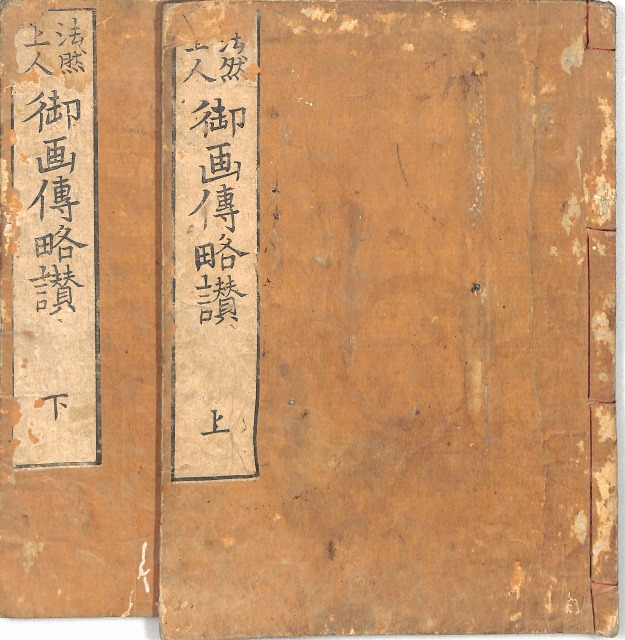 法然
上人
御画傳略讃
上
法然
上人
御画傳略讃
下